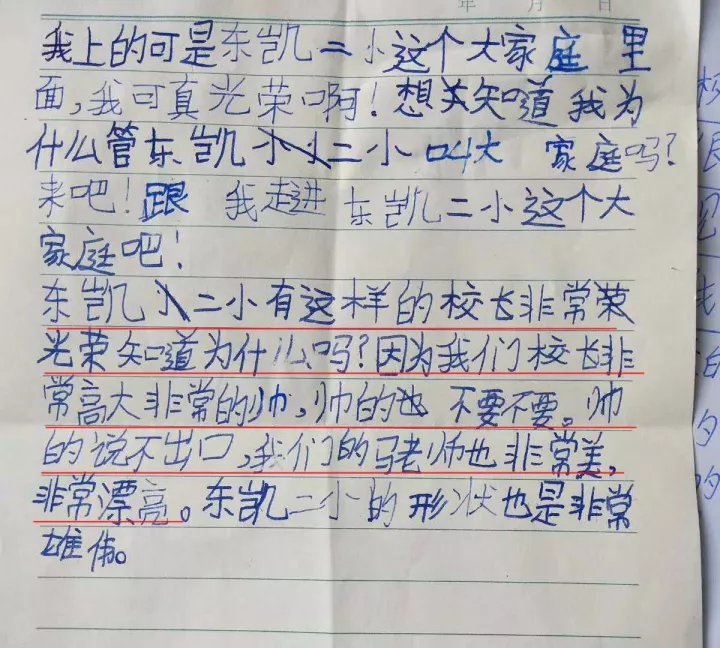 年 月 日
我上的可是东凯二小这个大家庭 里
面,我可真光荣啊!想关知道我为
什么管东凯小小二小叫大 家庭吗?
来吧!跟 我走进东凯二小这个大
家庭吧!
东凯小二小有这样的校长非常荣
光荣知道为什么吗?因为我们校长非
常高大非常的帅,帅的也 不要不要。帅
的说不出口,我们的马老师也非常美,
非常漂亮。东凯二小的形状也是非常
雄伟。